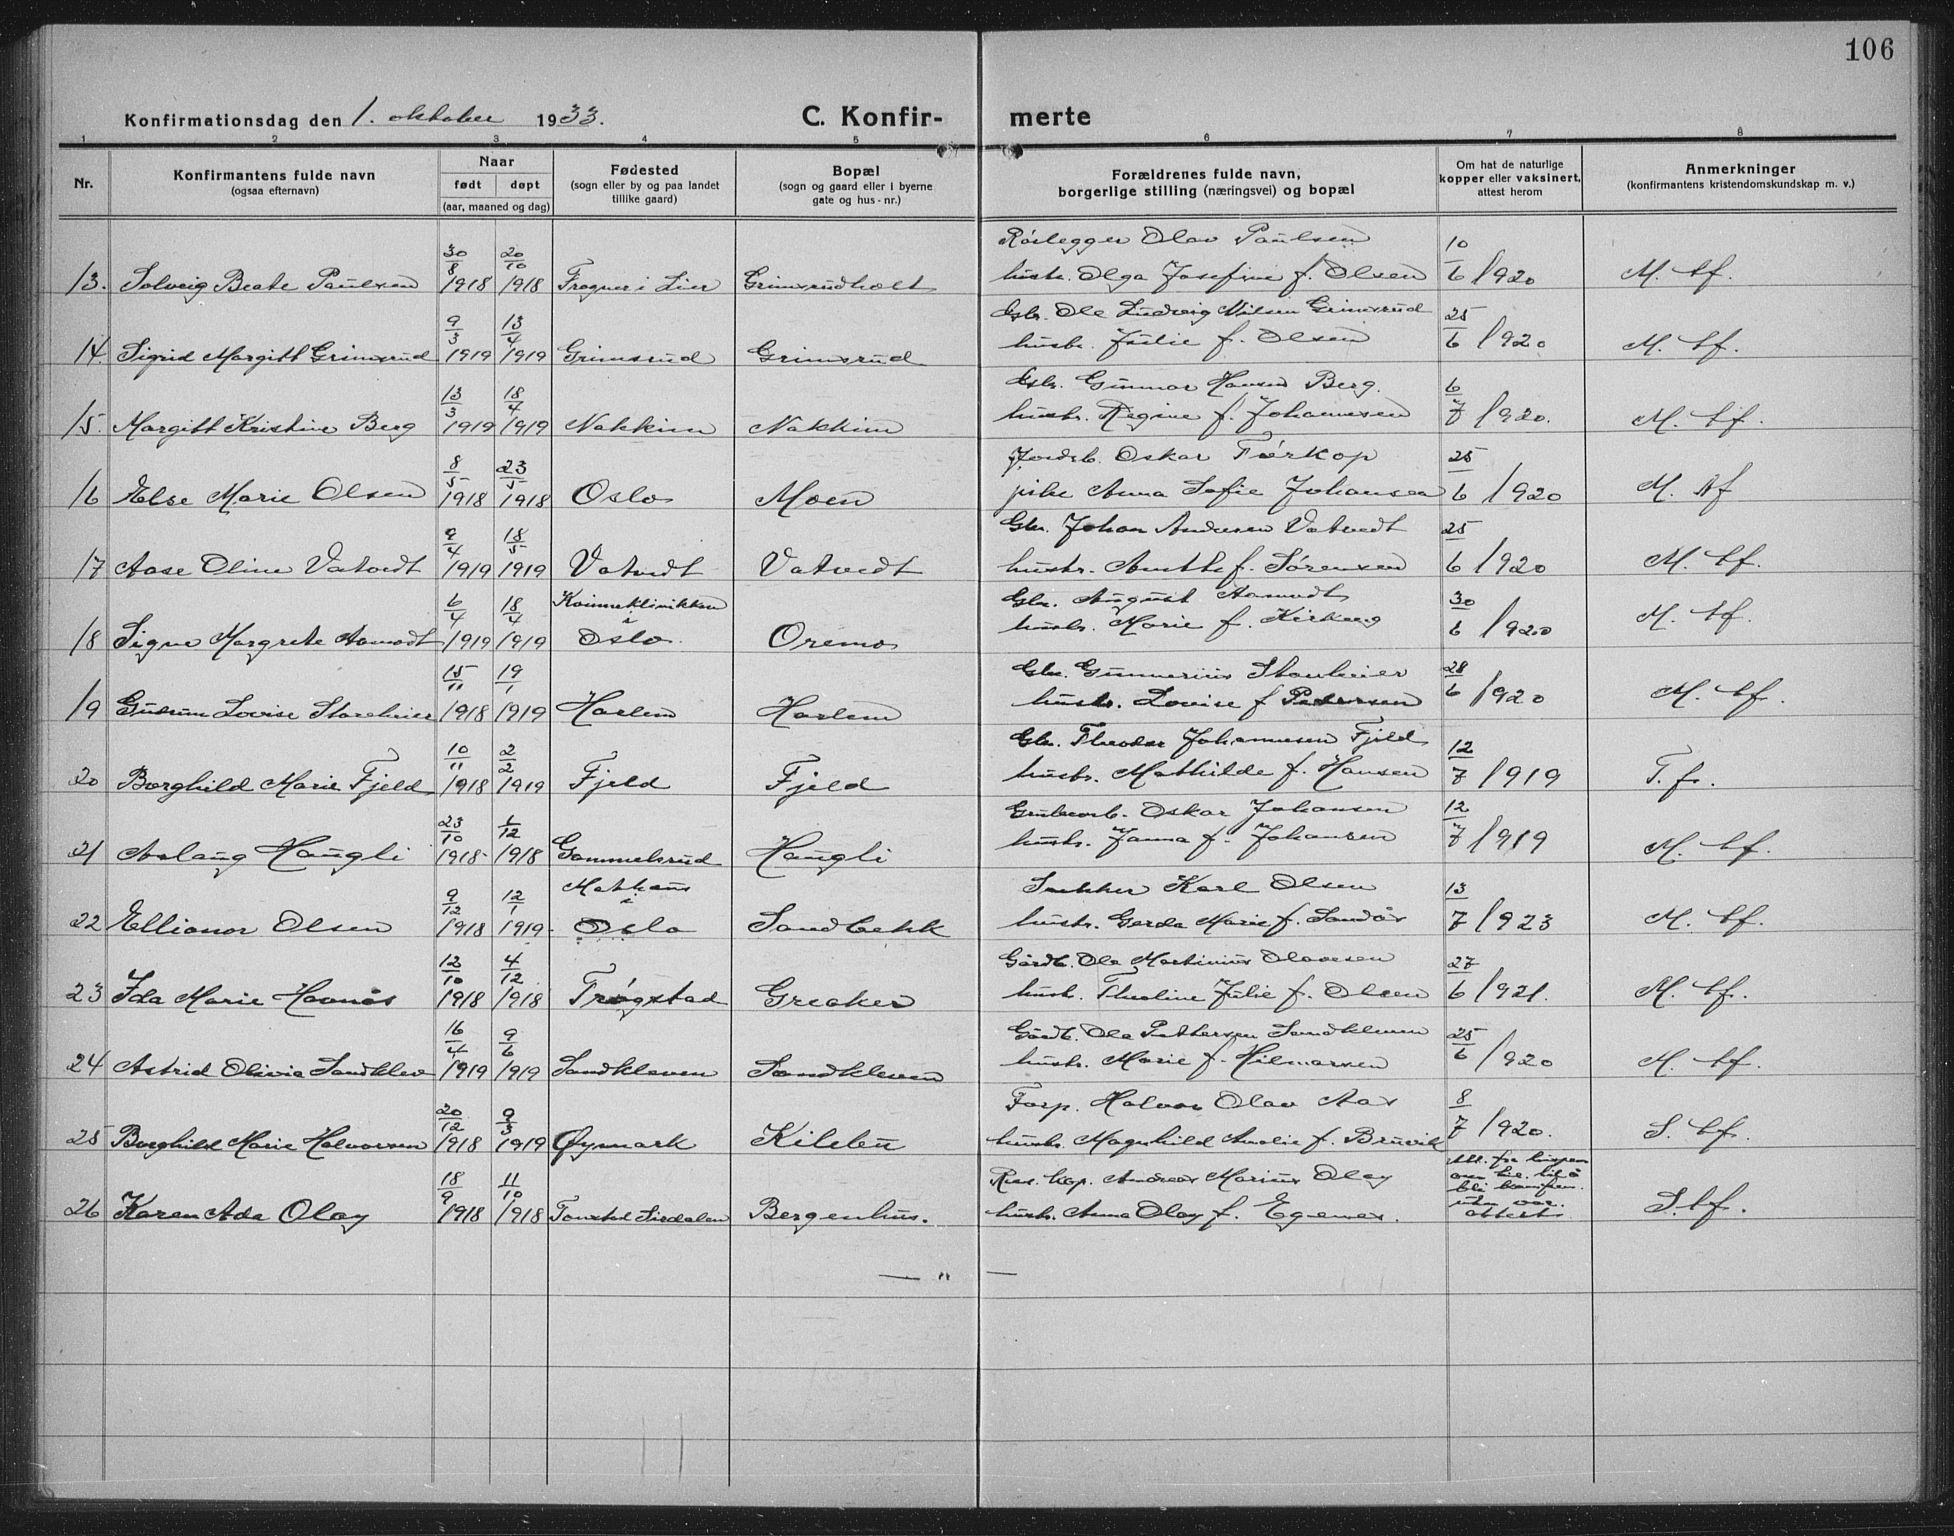 106
Konfirmationsdag den 1. oktober 1933. C. Konfir- merte
1 2 3 4 5 6 7 8
Nr. Konfirmantens fulde navn (ogsaa efternavn) Naar født døpt (aar, maaned og dag) Fødested (sogn eller by og paa landet tillike gaard) Bopæl (sogn og gaard eller i byerne gate og hus-nr.) Forældrenes fulde navn, borgerlige stilling (næringsvei) og bopæl Om hat de naturlige kopper eller vaksinert, attest herom Anmerkninger (konfirmantens kristendomskundskap m. v.)
13. Solveig Beate Paulsen 30/8 1918 20/10 1918 Frogner i Lier Grimsrudholt Rørlegger Olav Paulsen
hustr. Olga Josefine f. Olsen 10/6 1920 M. tf.
14. Sigrid Margitt Grimsrud 9/3 1919 13/4 1919 Grimsrud Grimsrud Gbr. Ole Ludvig Nilsen Grimsrud
hustr. Julie f. Olsen 25/6 1920 M. tf.
15. Margitt Kristine Berg 13/3 1919 18/4 1919 Nakkim Nakkim Gbr. Gunnar Hansen Berg.
hustr. Regine f. Johannesen 6/7 1920. M. tf.
16 Else Marie Olsen 8/5 1918 23/5 1918 Oslo Moen Jordb. Oskar Tørkop
pike Anna Sofie Johansen 25/6 1920 M. tf
17 Aase Oline Vatvedt 9/4 1919 18/5 1919 Vatvedt Vatvedt Gbr. Johan Andersen Vatvedt
hustr. f. Sørensen 25/6 1920 M. tf.
18 Signe Margrete Aamodt 6/4 1919 18/4 1919 Kvinneklinikken i Oslo Oremo Gbr. August Aamodt
hustr. Marie f. Kirkeng 30/6 1920 M. tf.
19 Gudrun Lovise Storeheier 15/11 1918 19/1 1919 Harlem Harlem Gbr. Gunnerius Storeheier
hustr. Lovise f Pedersen 28/6 1920 M. tf.
20 Borghild Marie Fjeld 10/11 1918 2/2 1919 Fjeld Fjeld Gbr. Theodor Johannesen Fjeld
hustr. Mathilde f. Hansen 12/7 1919 T. f.
21 Aslaug Haugli 23/10 1918- 1/12 1918 Gammelsrud Haugli Grubearb. Oskar Johansen
hustr. Janna f. Johansen 12/7 1919 M. tf.
22 Ellionor Olsen 9/12 1918 12/1 1919- Mathaus i Oslo Sandbekk Snekker Karl Olsen
hustr. Gerda Marie f. Sandås 13/7 1923 M. tf.
23 Ida Marie Havnås 12/10 1918 4/12 1918 Trøgstad Greaker Gårdb. Ole Martinius Olavesen
hustr. Theoline Julie f. Olsen 27/6 1921. M. tf.
24 Astrid Olivia Sandklev 16/4 1919 9/6 1919 Sandkleven Sandkleven Gårdb. Ole Pettersen Sandkleven
hustr. Marie f. Hilmarsen 25/6 1920 M. tf.
25 Borghild Marie Halvorsen 20/12 1918 9/3 1919 Øymark Kilebu Forp. Halvor Olav Aas
hustr. Magnhild Amalie f. Bruvik 8/7 1920. S. tf.
26 Karen Ada Olay 18/9 1918 11/10 1918 Tonstad Sirdalen Bergenhus. Res. kap. Andreas Marius Olay
hustr. Anna Olay f. Egenes. Att. fra bispen om til. til å bli konfirm. uten vac. attest S. tf.
— " —